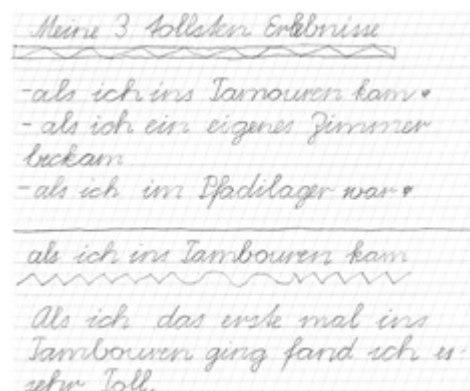 Meine 3 tollsten Erlebnisse
-als ich ins Tamouren kam.
- als ich ein eigenes Zimmer
bekam
-als ich im Pfadilager war.
als ich ins Tambouren kam
Als ich das erste mal ins
Tambouren ging fand ich es
sehr Toll.